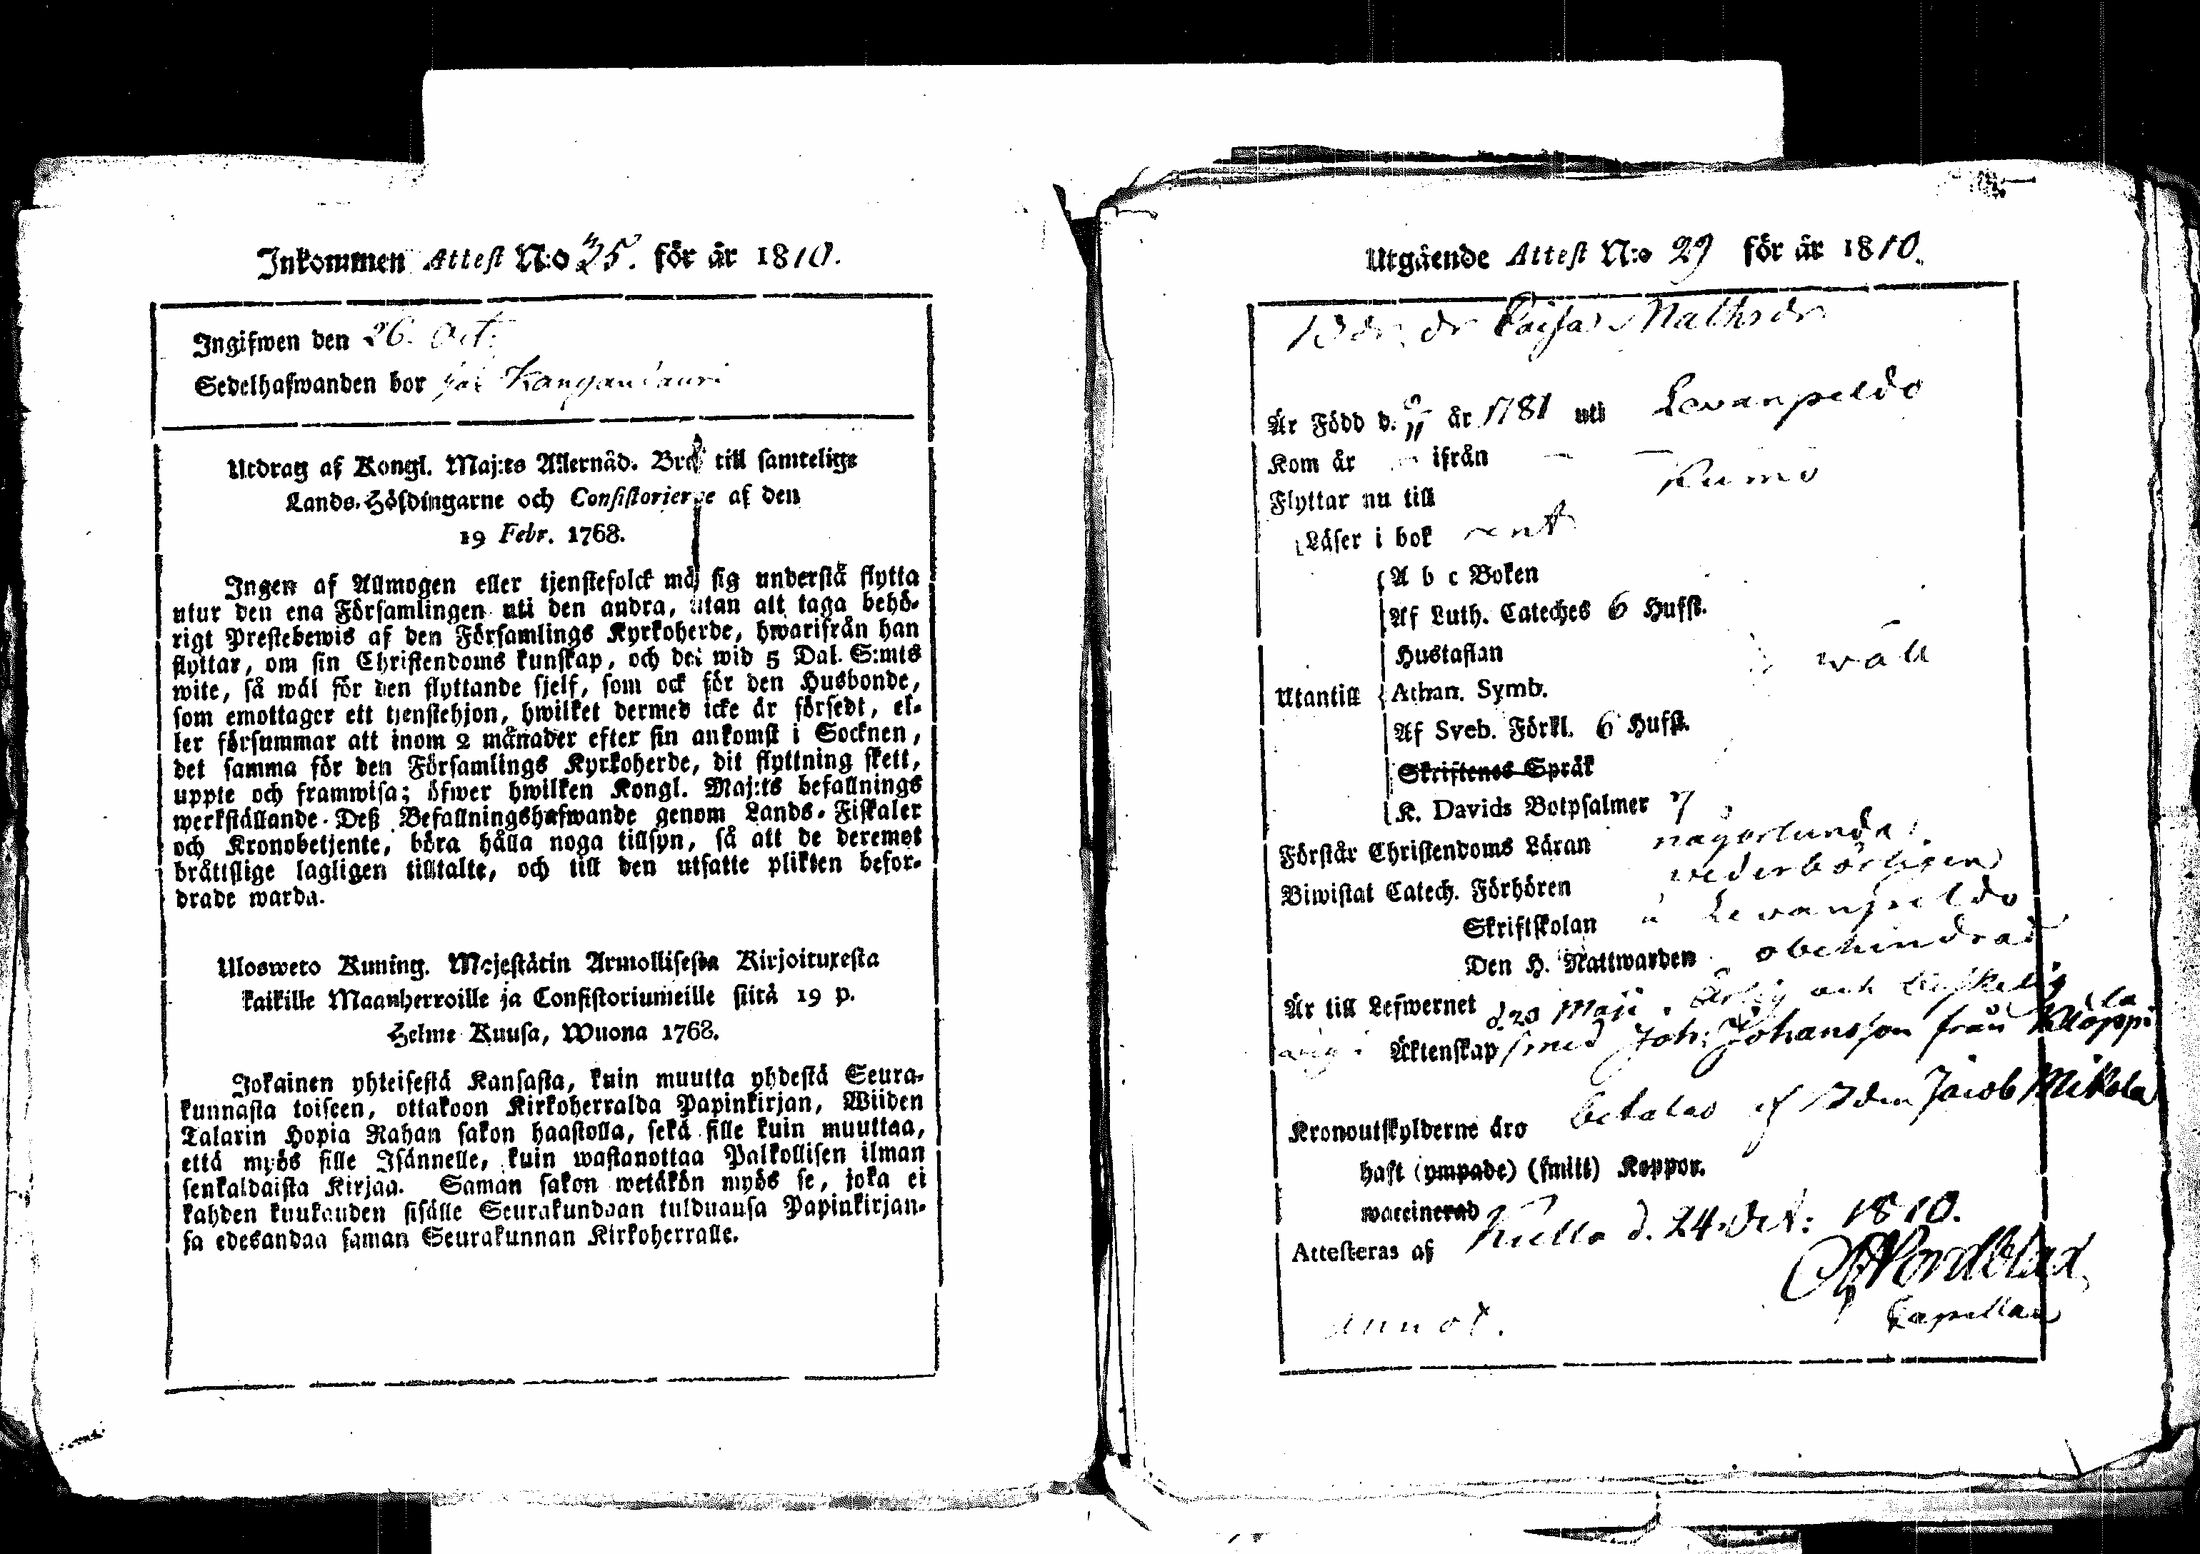 Inkommen Attest N:o 25. för år 1810.
Ingifwen den 26. Oct:
Sedelhafwanden bor
Utdrag af Kongl. Maj:ts Allernåd. Bref till samtelige
Lands-Höfdingarne och Consistorierne af den
19 Febr. 1768.
Ingen af Allmogen eller tjenstefolck må sig understå flytta
utur den ena Församlingen uti den andra, utan att taga behö-
rigt Prestebewis af den Församlings Kyrkoherde, hwarifrån han
flyttar, om sin Christendoms kunskap, och det wid 5 Dal. S:mts
wite, så wäl för den flyttande sjelf, som ock för den Husbonde,
som emottager ett tjenstehjon, hwilket dermed icke är försedt, el-
ler försummar att inom 2 månader efter sin ankomst i Socknen,
det samma för den Församlings Kyrkoherde, dit flyttning skett,
uppte och framwisa; öfwer hwilken Kongl. Maj:ts befallnings
werkställande Deß Befallningshafwande genom Lands-Fiskaler
och Kronobetjente, böra hålla noga tillsyn, så att de deremot
bråttslige lagligen tilltalte, och till den utsatte plikten befor-
drade warda.
Ulosweto Kuning. Majestätin Armollisesta Kirjoituxesta
kaikille Maanherroille ja Consistoriumeille siitä 19 p.
Helme Kuusa, Wuona 1768.
Jokainen yhteisestä Kansasta, kuin muutta yhdestä Seura-
kunnasta toiseen, ottakoon Kirkoherralda Papinkirjan, Wiiden
Talarin Hopia Rahan sakon haastolla, sekä sille kuin muuttaa,
että myös sille Isännelle, kuin wastanottaa Palkollisen ilman
senkaldaista Kirjaa. Saman sakon wetäkön myös se, joka ei
kahden kuukauden sisälle Seurakundaan tulduansa Papinkirjan-
sa edesandaa saman Seurakunnan Kirkoherralle.
Utgående Attest N:o 29 för år 1810.
dr Caisa Mathsdr
Är Född d. 9/11 år 1781 uti Levanpeldo
Kom år ifrån
Flyttar nu till Kumo
Läser i bok rent
A b c Boken
Af Luth. Cateches 6 Hufst.
Hustaflan
wäll
Utantill Athan. Symb.
Af Sveb. Förkl. 6 Hufst.
Skriftenes Språk
K. Davids Botpsalmer 7
Förstår Christendoms Läran någorlunda
Biwistat Catech. Förhören vederbörligen
Skriftskolan i Levanpeldo
Den H. Nattwarden obehindrad
Är till Lefwernet ärlig och
d. 20 Maji
Äktenskap med Joh: Johansson från
Kronoutskylderne äro betalas af Jacob Mikola
haft (ympade) (smitt) Koppor.
waccinerad
Attesteras af Kiello d. 24 Oct: 1810.
Nordblad
Capellan
Annot.